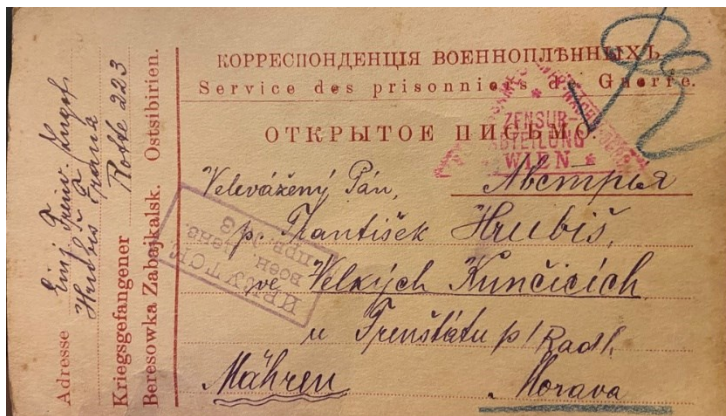 КОРРЕСПОНДЕНЦІЯ ВОЕННОПЛѢННЫХЪ.
Service des prisonniers de Guerre.
ОТКРЫТОЕ ПИСЬМО.
ZENSUR-
ABTEILUNG
WIEN
Velevážený Pán,
Австрыя
p. František Hrubiš,
ve Velkých Kunčicích
u Frenštátu p/Radh.
Mähren
Morava
ИРКУТСК.
воен. ценз.
Adresse Einj. Freiw.
Hrubiš Franz
Kriegsgefangener Rotte 223
Beresowka Zabajkalsk. Ostsibirien.